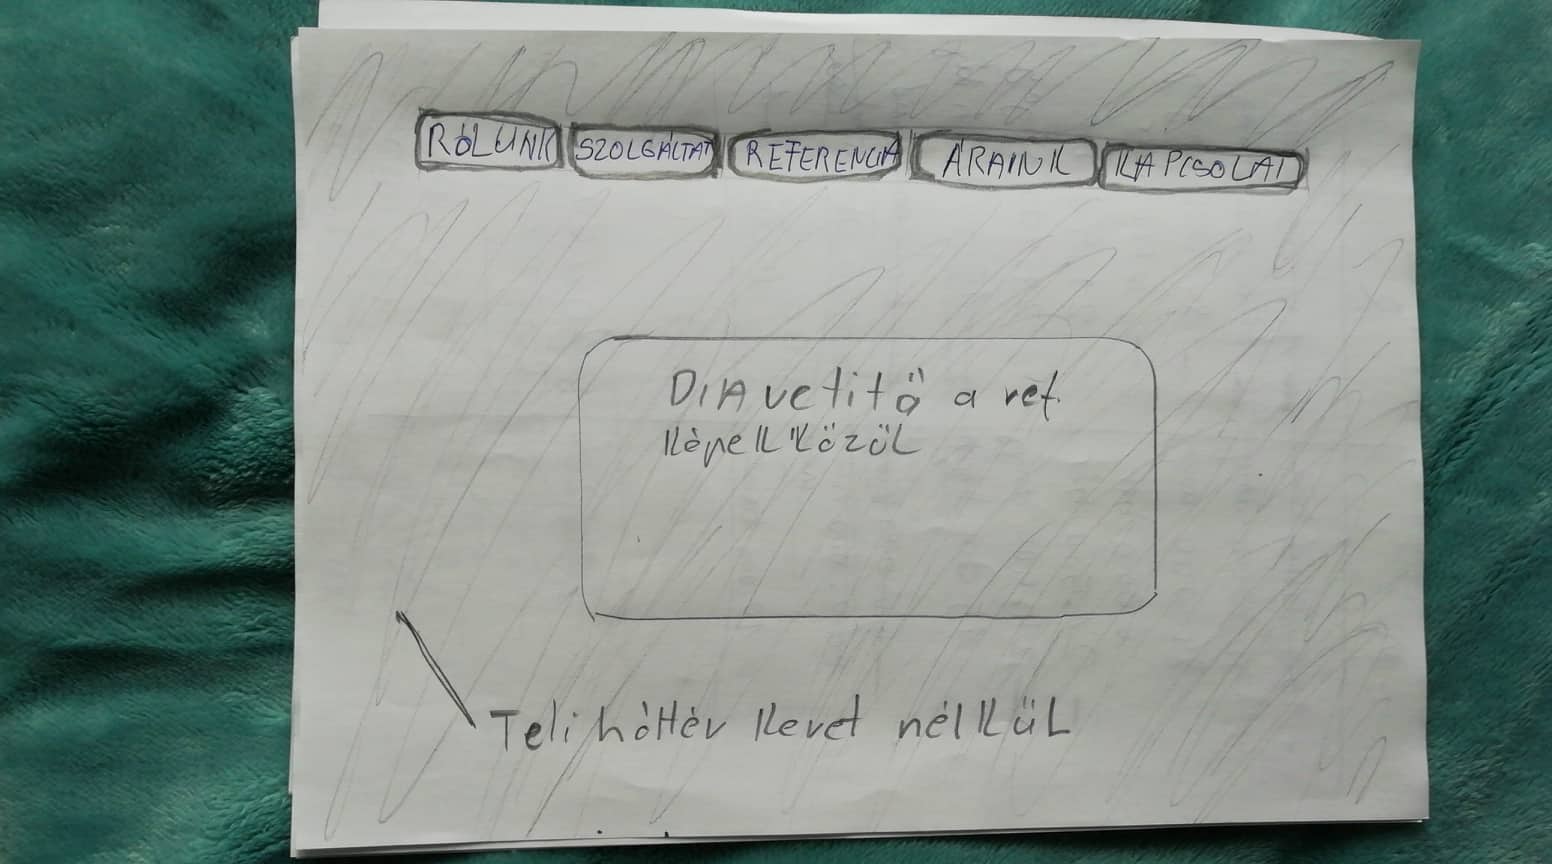 RÓLUNK SZOLGÁLTAT REFERENCIA ÁRAINK KAPCSOLAT
DIAvetitő a ref.
képek közül
Teli háttér keret nélkül